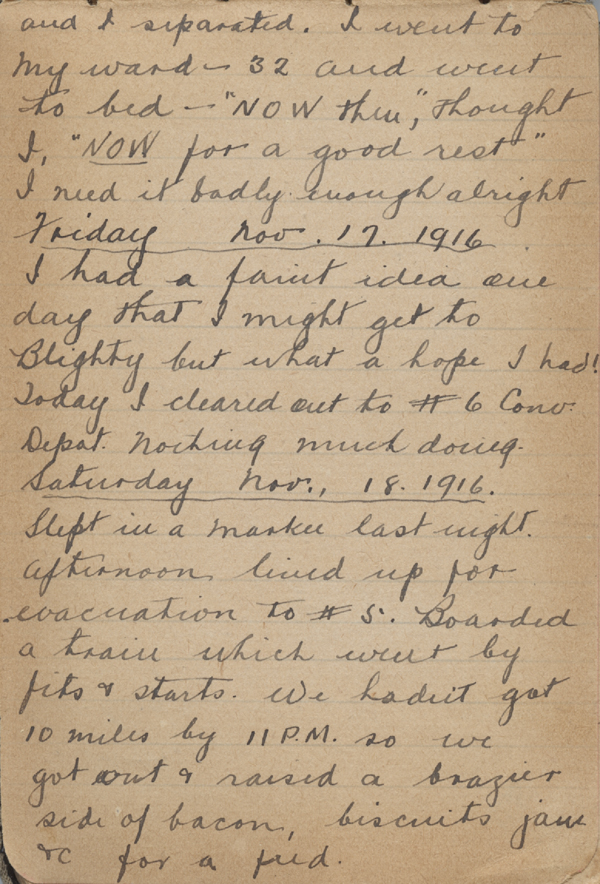 and I separated. I went to
my ward - 32 and went
to bed - "NOW then", thought
I, "NOW for a good rest"
I need it badly enough alright
Friday Nov. 17. 1916
I had a faint idea one
day that I might get to
Blighty but what a hope I had!
Today I cleared out to # 6 Conv.
Depot. Nothing much doing.
Saturday Nov., 18. 1916.
Slept in a markee last night.
Afternoon lined up for
evacuation to # 5. Boarded
a train which went by
fits & starts. We hadn't got
10 miles by 11 P.M. so we
got out & raised a brazier
side of bacon, biscuits jam
&c for a feed.